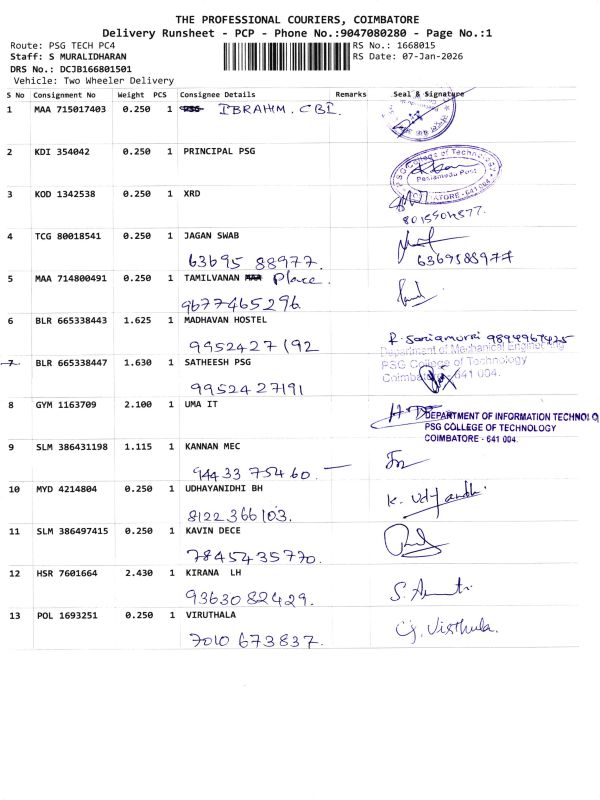 THE PROFESSIONAL COURIERS, COIMBATORE
Delivery Runsheet - PCP - Phone No.:9047080280 - Page No.:1
Route: PSG TECH PC4 RS No.: 1668015
Staff: S MURALIDHARAN RS Date: 07-Jan-2026
DRS No.: DCJB166801501
Vehicle: Two Wheeler Delivery
S No Consignment No Weight PCS Consignee Details Remarks Seal & Signature
1 MAA 715017403 0.250 1 PSG IBRAHIM. CBI.
2 KDI 354042 0.250 1 PRINCIPAL PSG
PSG College of Technology
Peelamedu Post
COIMBATORE - 641 004.
3 KOD 1342538 0.250 1 XRD
8015904577.
4 TCG 80018541 0.250 1 JAGAN SWAB
63695 88977. 6369588977
5 MAA 714800491 0.250 1 TAMILVANAN MAA Place.
9677465296.
6 BLR 665338443 1.625 1 MADHAVAN HOSTEL
9952427192 9894967425
Department of Mechanical Engineering
7 BLR 665338447 1.630 1 SATHEESH PSG PSG College of Technology
Coimbatore - 641 004.
9952427191
8 GYM 1163709 2.100 1 UMA IT
DEPARTMENT OF INFORMATION TECHNOLO
PSG COLLEGE OF TECHNOLOGY
COIMBATORE - 641 004.
9 SLM 386431198 1.115 1 KANNAN MEC
94433 75460.
10 MYD 4214804 0.250 1 UDHAYANIDHI BH
8122366103.
11 SLM 386497415 0.250 1 KAVIN DECE
7845435770.
12 HSR 7601664 2.430 1 KIRANA LH
9363082429.
13 POL 1693251 0.250 1 VIRUTHALA
7010 673837.